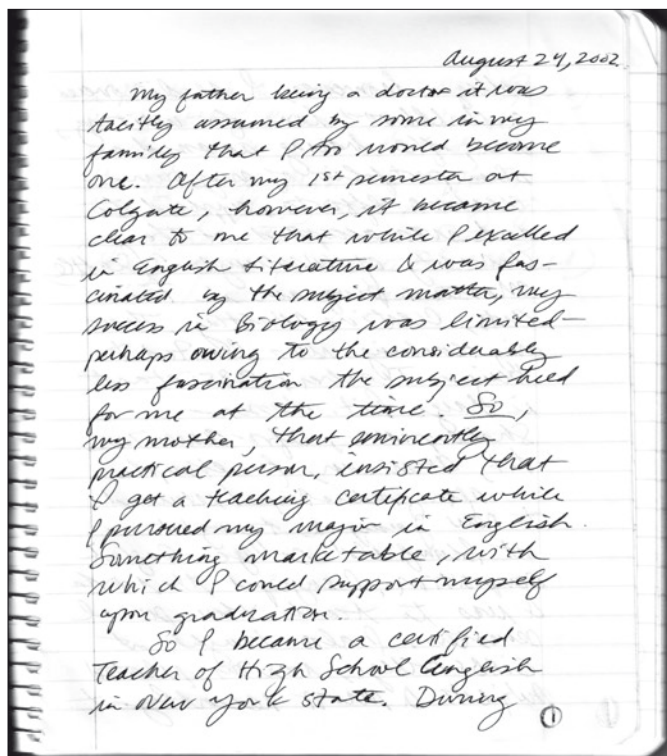 August 24, 2002
My father being a doctor it was
tacitly assumed by some in my
family that I too would become
one. After my 1st semester at
Colgate, however, it became
clear to me that while I excelled
in English Literature & was fas-
cinated by the subject matter, my
success in Biology was limited-
perhaps owing to the considerably
less fascination the subject held
for me at the time. So,
my mother, that eminently
practical person, insisted that
I get a teaching certificate while
I pursued my major in English.
Something marketable, with
which I could support myself
upon graduation.
So I became a certified
Teacher of High School English
in New York State. During
1